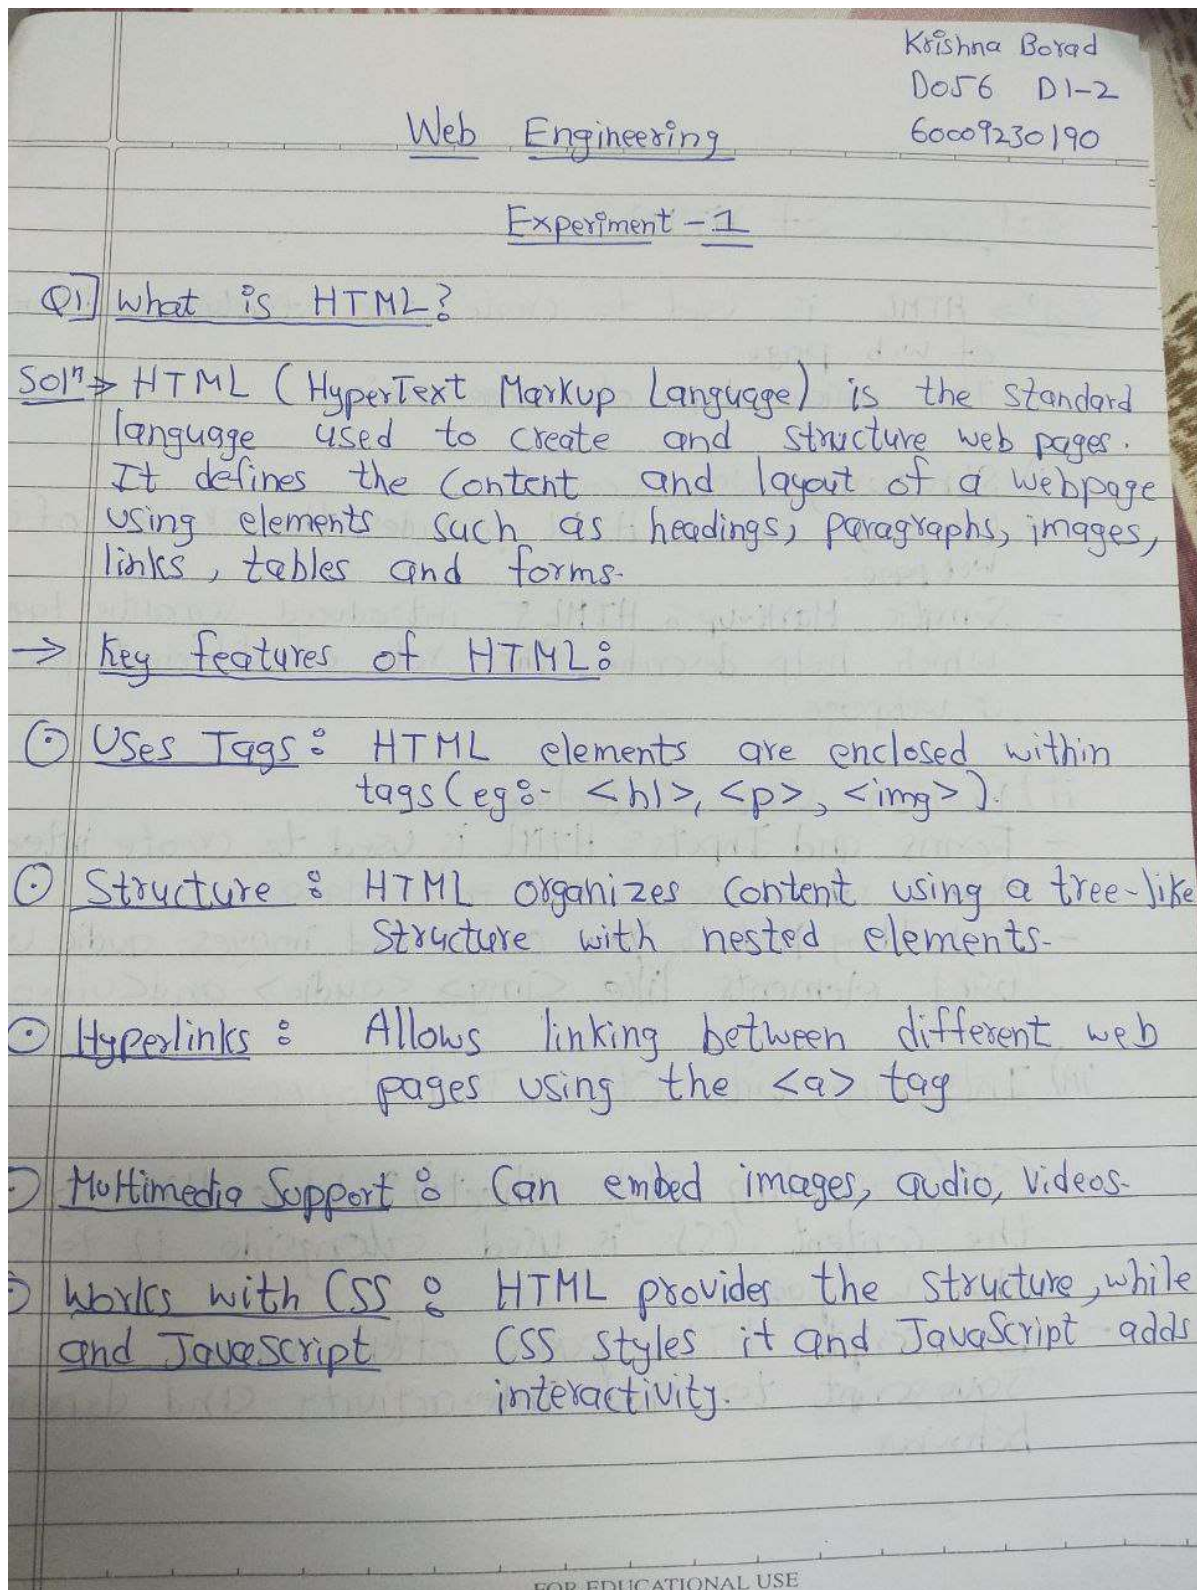 Krishna Borad
D056 D1-2
60009230190
Web Engineering
Experiment - 1
Q1] What is HTML?
Solⁿ → HTML (HyperText Markup Language) is the standard
language used to create and structure web pages.
It defines the content and layout of a webpage
using elements such as headings, paragraphs, images,
links, tables and forms.
→ Key features of HTML:
⊙ Uses Tags: HTML elements are enclosed within
tags (eg:- <h1>, <p>, <img>).
⊙ Structure: HTML organizes content using a tree-like
structure with nested elements.
⊙ Hyperlinks: Allows linking between different web
pages using the <a> tag
⊙ Multimedia Support: Can embed images, audio, videos.
⊙ Works with CSS : HTML provides the structure, while
and JavaScript CSS styles it and JavaScript adds
interactivity.
FOR EDUCATIONAL USE